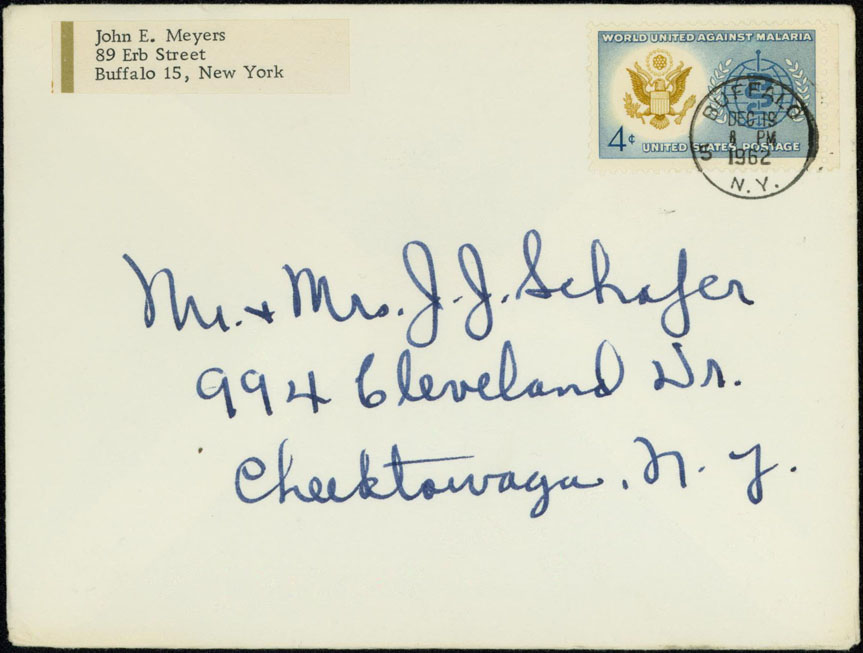 John E. Meyers
89 Erb Street
Buffalo 15, New York
WORLD UNITED AGAINST MALARIA
4¢
UNITED STATES POSTAGE
BUFFALO
DEC 19
8 PM
1962
N.Y.
Mr. + Mrs. J. J. Schafer
994 Cleveland Dr.
Cheektowaga, N. Y.